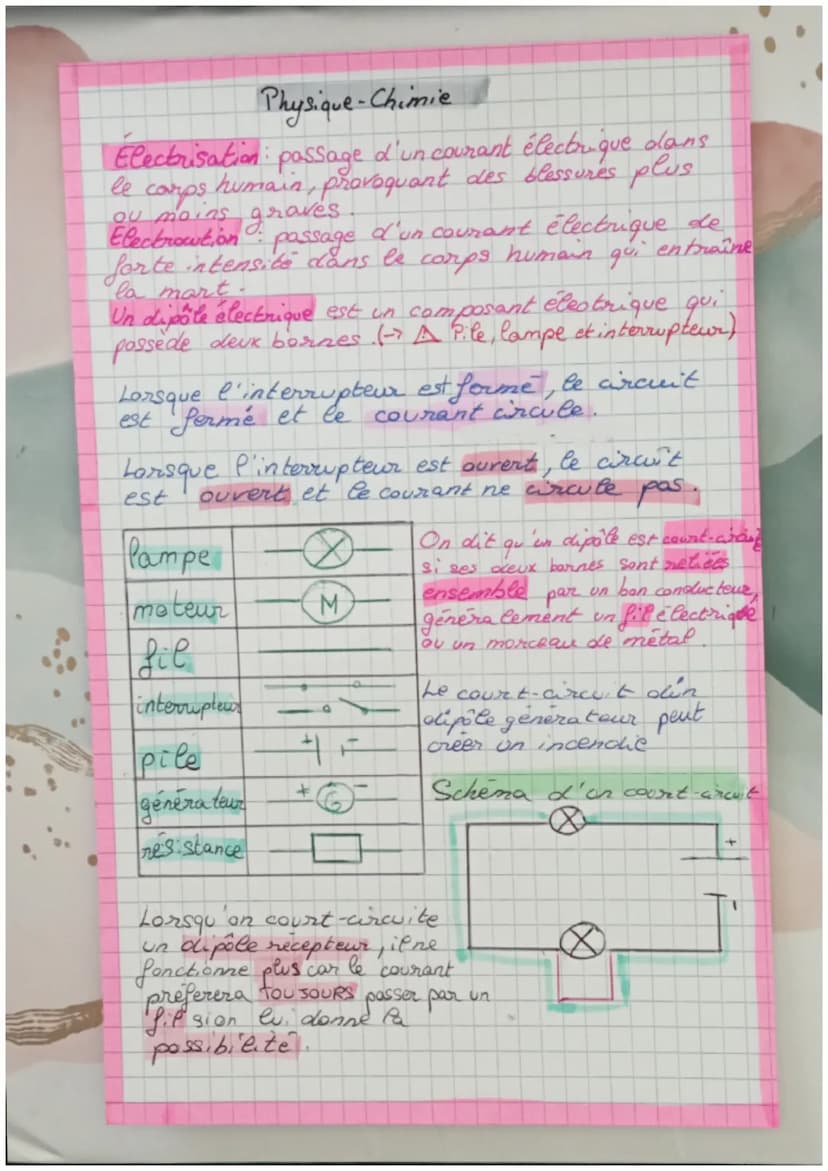 Physique-Chimie
Électrisation : passage d'un courant électrique dans
le corps humain, provoquant des blessures plus
ou moins graves.
Electrocution : passage d'un courant électrique de
forte intensité dans le corps humain qui entraîne
la mort.
Un dipôle électrique est un composant électrique qui
possède deux bornes. (→ ⚠ Pile, lampe et interrupteur)
Lorsque l'interrupteur est fermé, le circuit
est fermé et le courant circule.
Lorsque l'interrupteur est ouvert, le circuit
est ouvert et le courant ne circule pas.
lampe
moteur M
fil
interrupteur
pile + -
générateur + G -
résistance
On dit qu'un dipôle est court-circuit
si ses deux bornes sont reliées
ensemble par un bon conducteur,
généralement un fil électrique
ou un morceau de métal.
Le court-circuit d'un
dipôle générateur peut
créer un incendie
Schéma d'un court-circuit
+
-
Lorsqu'on court-circuite
un dipôle récepteur, il ne
fonctionne plus car le courant
préferera TOUJOURS passer par un
fil si on lui donne la
possibilité.